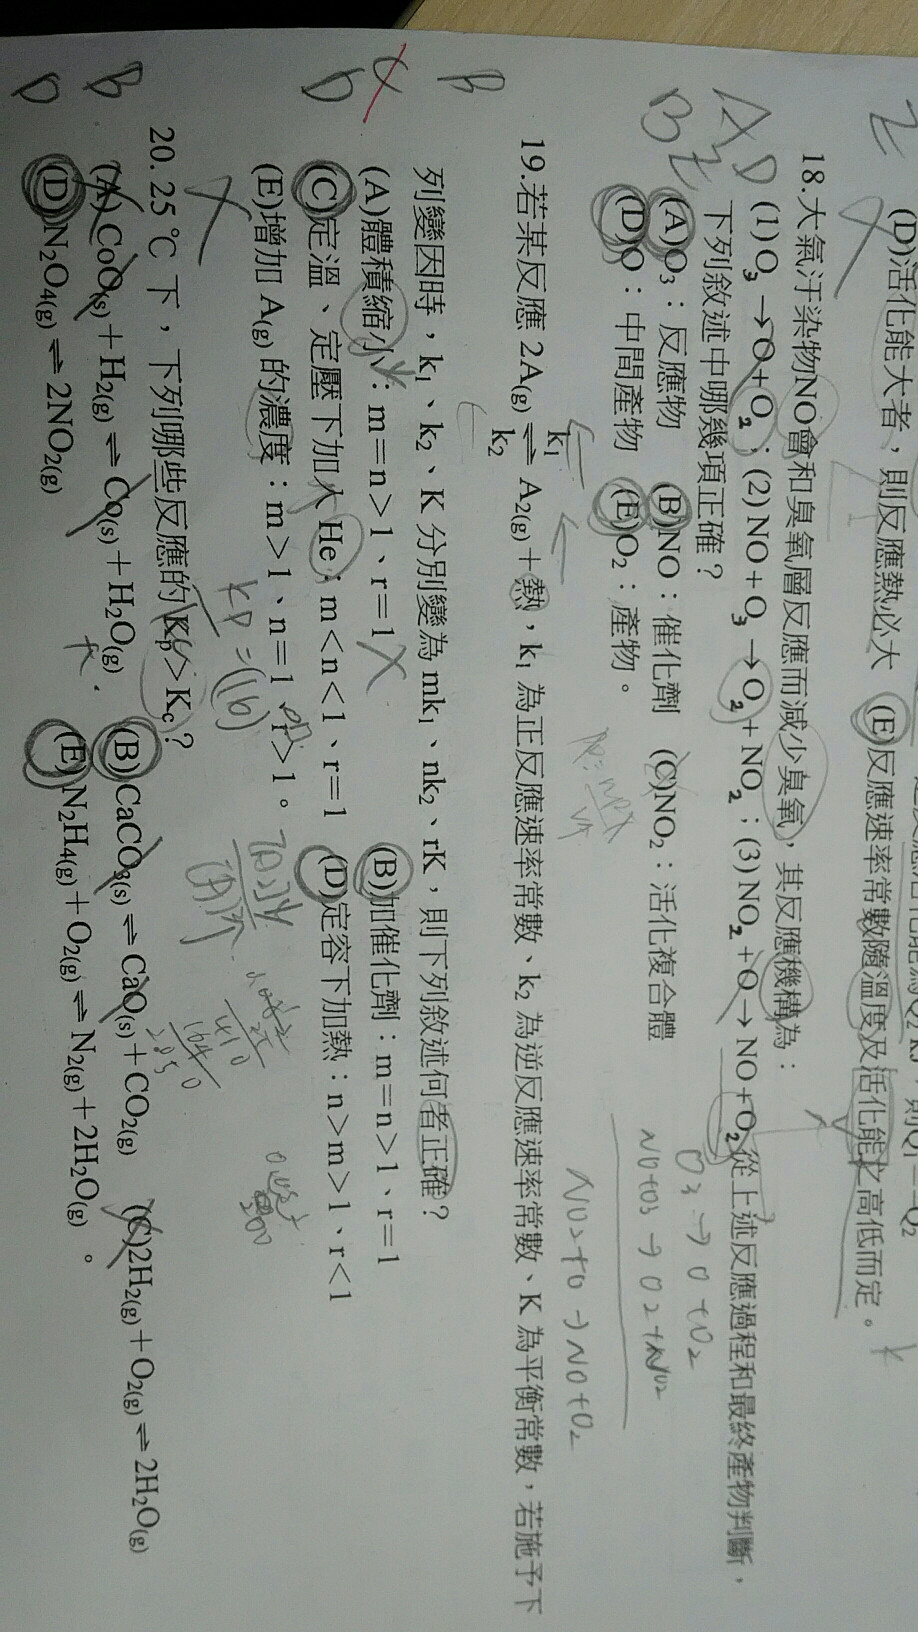 (D)活化能大者，則反應熱必大 (E)反應速率常數隨溫度及活化能之高低而定。
18.大氣汙染物NO會和臭氧層反應而減少臭氧，其反應機構為：
(1)O₃→O+O₂；(2)NO+O₃→O₂+NO₂；(3)NO₂+O→NO+O₂從上述反應過程和最終產物判斷，
下列敘述中哪幾項正確？
(A)O₃：反應物 (B)NO：催化劑 (C)NO₂：活化複合體
(D)O：中間產物 (E)O₂：產物。
A
B
D
E
O₃→O+O₂
NO+O₃→O₂+NO₂
NO₂+O→NO+O₂
19.若某反應 2A(g) ⇌ A₂(g)+熱，k₁ 為正反應速率常數、k₂ 為逆反應速率常數、K 為平衡常數，若施予下
k₁
k₂
列變因時，k₁、k₂、K 分別變為 mk₁、nk₂、rK，則下列敘述何者正確？
(A)體積縮小：m＝n＞1、r＝1 (B)加催化劑：m＝n＞1、r＝1
(C)定溫、定壓下加入 He：m＜n＜1、r＝1 (D)定容下加熱：n＞m＞1、r＜1
(E)增加 A(g) 的濃度：m＞1、n＝1、r＞1。
B
D
20. 25 ℃ 下，下列哪些反應的 Kp＞Kc？
(A)CoO(s)＋H₂(g)⇌Co(s)＋H₂O(g) (B)CaCO₃(s)⇌CaO(s)＋CO₂(g) (C)2H₂(g)＋O₂(g)⇌2H₂O(g)
(D)N₂O₄(g)⇌2NO₂(g) (E)N₂H₄(g)＋O₂(g)⇌N₂(g)＋2H₂O(g)。
B
D